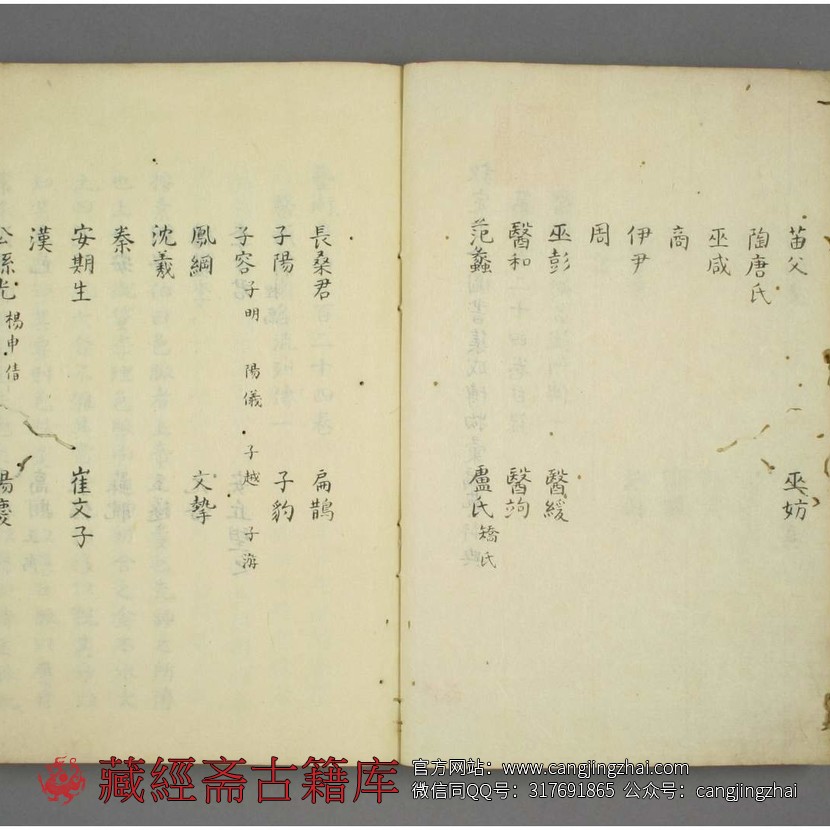 苗父 巫妨
陶唐氏
巫咸
商
伊尹
周
巫彭 醫緩
醫和 醫竘
范蠡 盧氏 矯氏
長桑君 扁鵲
子陽 子豹
子容 子明 陽儀 子越 子游
鳳綱 文摯
沈羲
秦
安期生 崔文子
漢
公孫光 楊中倩 陽慶
藏經斋古籍库
官方网站：www.cangjingzhai.com
微信同QQ号：317691865 公众号：cangjingzhai